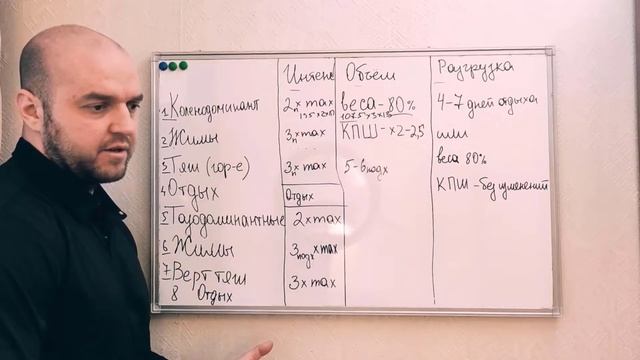 Интенс Объем Разгрузка
1 Коленодоминант 2п x max веса - 80% 4-7 дней отдыха
2 Жимы 3п x max КПШ - x2-2,5 или
3 Тяж (гор-е) 3п x max 5-6 подх веса 80%
4 Отдых Отдых КПШ - без изменений
5 Тазодоминантные 2 x max
6 Жимы 3подх x max
7 Верт тяж 3 x max
8 Отдых